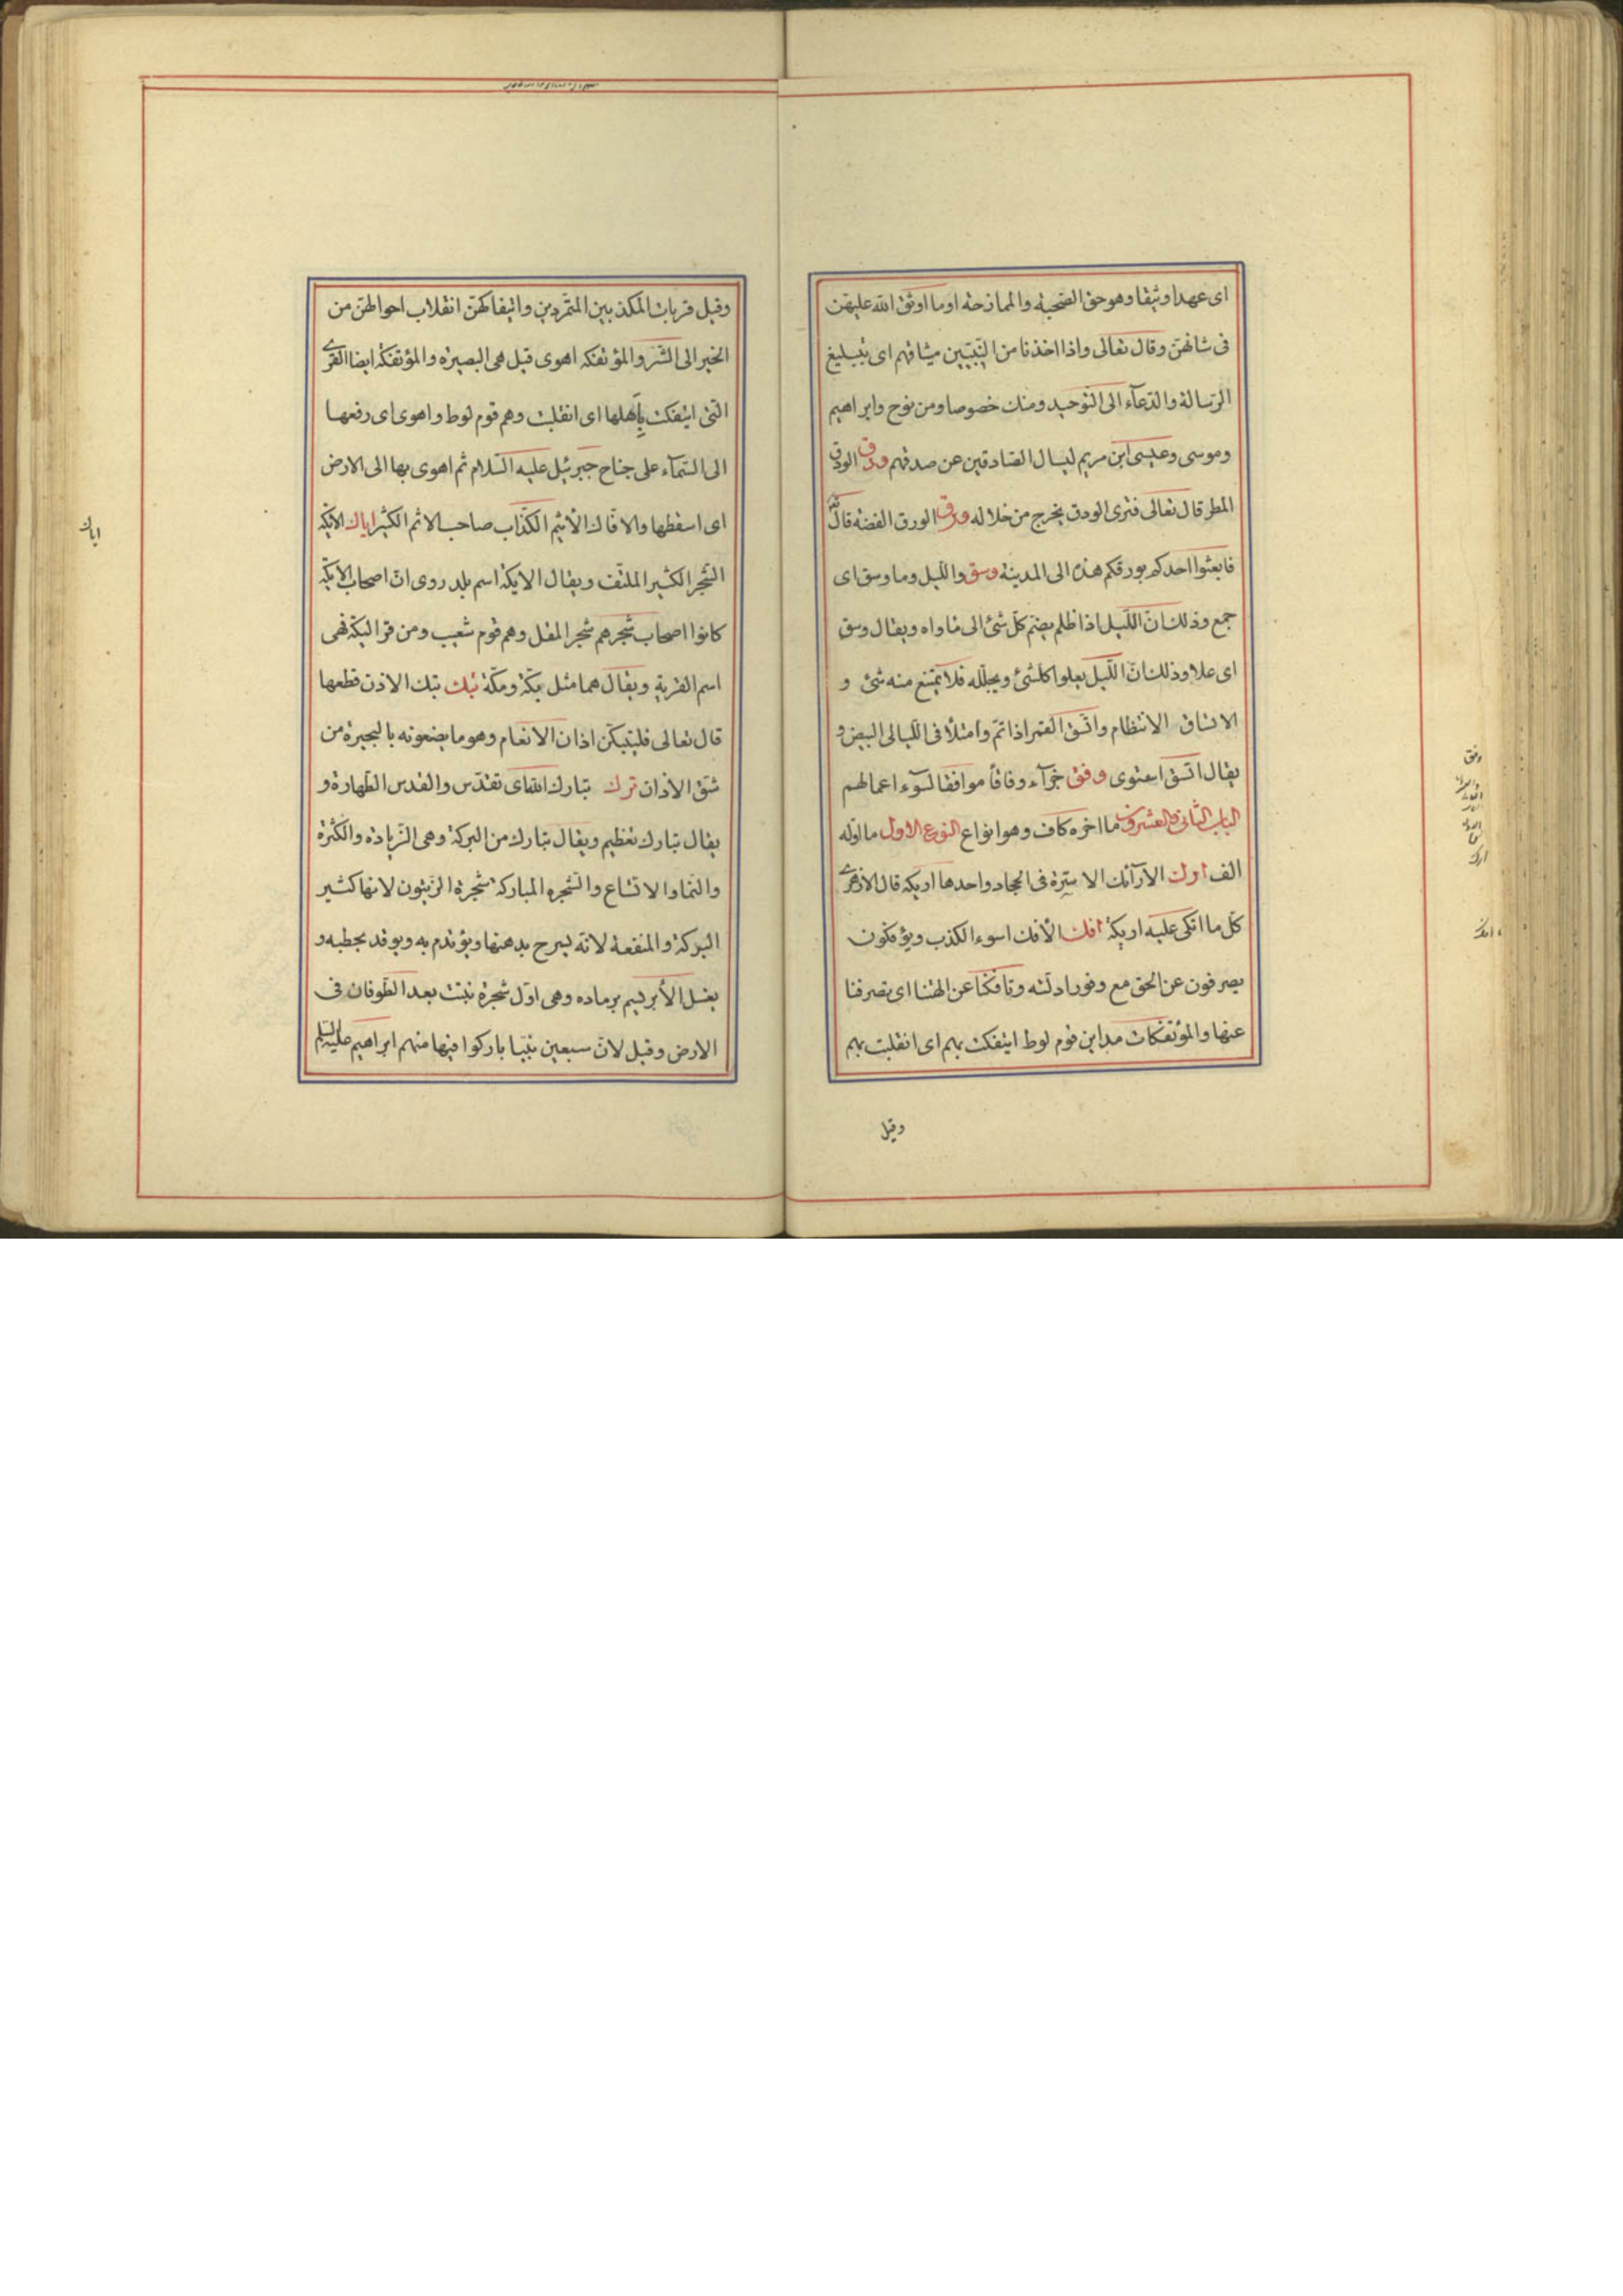 اى عهدا وثيقا وهو حق الصحبة والممازحة او ما اوثق الله عليهن
فى شانهن وقال تعالى واذا اخذنا من النبيّين ميثاقهم اى بتبليغ
الرّسالة والدّعآء الى التوحيد ومنك خصوصا ومن نوح وابراهيم
وموسى وعيسى ابن مريم ليسال الصّادقين عن صدقهم ودق الودق
المطر قال تعالى فترى الودق يخرج من خلاله ورق الورق الفضة قال
فابعثوا احدكم بورقكم هذه الى المدينة وسق واللّيل وما وسق اى
جمع وذلك انّ اللّيل اذا ظلم يضمّ كلّ شئ الى ماواه ويقال وسق
اى علا وذلك انّ اللّيل يعلوا كلشئ ويجلّله فلا يمتنع منه شئ و
الاتساق الانتظام واتّسق القمر اذا تمّ وامتلأ فى اللّيالى البيض و
يقال اتّسق استوى وفق جزآء وفاقاً موافقا لسوء اعمالهم
الباب الثّانى والعشرون ما اخره كاف وهو انواع النوع الاول ما اوّله
الف ارك الارآئك الاسرّة فى الحجال واحدها اريكه قال الازهرى
كلّ ما اتكى عليه اريكة افك الأفك اسوء الكذب ويؤفكون
يصرفون عن الحق مع وفور ادلّته وتافكنا عن الهتنا اى تصرفنا
عنها والمؤتفكات مداين قوم لوط ايتفكت بهم اى انقلبت بهم
وقيل
وفق
ارك
افك
وقيل قريات المكذبين المتمّردين وايتفاكهنّ انقلاب احوالهنّ من
الخير الى الشّر والمؤتفكه اهوى قيل هى البصيرة والمؤتفكة ايضا القرى
التى ايتفكت بأهلها اى انقلبت وهم قوم لوط واهوى اى رفعها
الى السّمآء على جناح جبرئيل عليه السّلام ثم اهوى بها الى الارض
اى اسقطها والافّاك الأثيم الكذّاب صاحب الاثم الكثير اياك الايكة
الشّجر الكثير الملتّف ويقال الايكة اسم بلد روى انّ اصحاب الايكة
كانوا اصحاب شجر هم شجر المقل وهم قوم شعيب ومن قرا ليكة فهى
اسم القرية ويقال هما مثل بكّة ومكّة بتك بتك الاذن قطعها
قال تعالى فليبتكّن اذان الانعام وهو ما يضعونه بالبحيرة من
شقّ الاذان برك تبارك الله اى تقدّس والقدس الطّهارة و
يقال تبارك تعظيم ويقال تبارك من البركة وهى الزّيادة والكثرة
والنّما والاتساع والشّجره المباركة شجرة الزّيتون لانها كثير
البركة والمنفعة لانّه يسرح بدهنها ويؤتدم به ويوقد بحطبه و
يغسل الأبريسم برماده وهى اوّل شجرة نبتت بعد الطّوفان فى
الارض وقيل لانّ سبعين نبيّا باركوا فيها منهم ابراهيم عليه السّلم
اياك